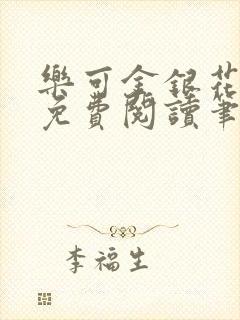 樂可金銀花
免費閱讀筆
李福生